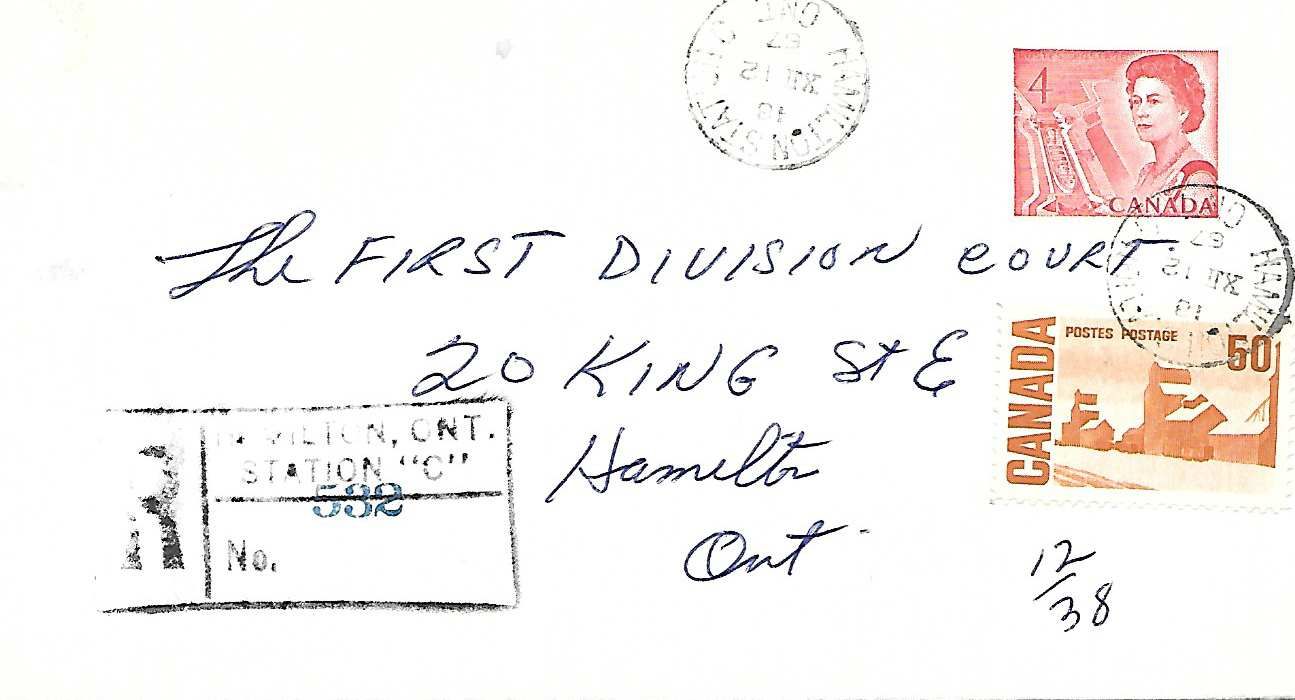 HAMILTON STA C
ONT
67
XII 12
18
4
CANADA
HAMILTON
ONT
67
XII 12
18
The FIRST DIVISION COURT
20 KING St E
Hamilton
Ont
CANADA
POSTES POSTAGE
50
R
HAMILTON, ONT.
STATION "C"
532
No.
12/38